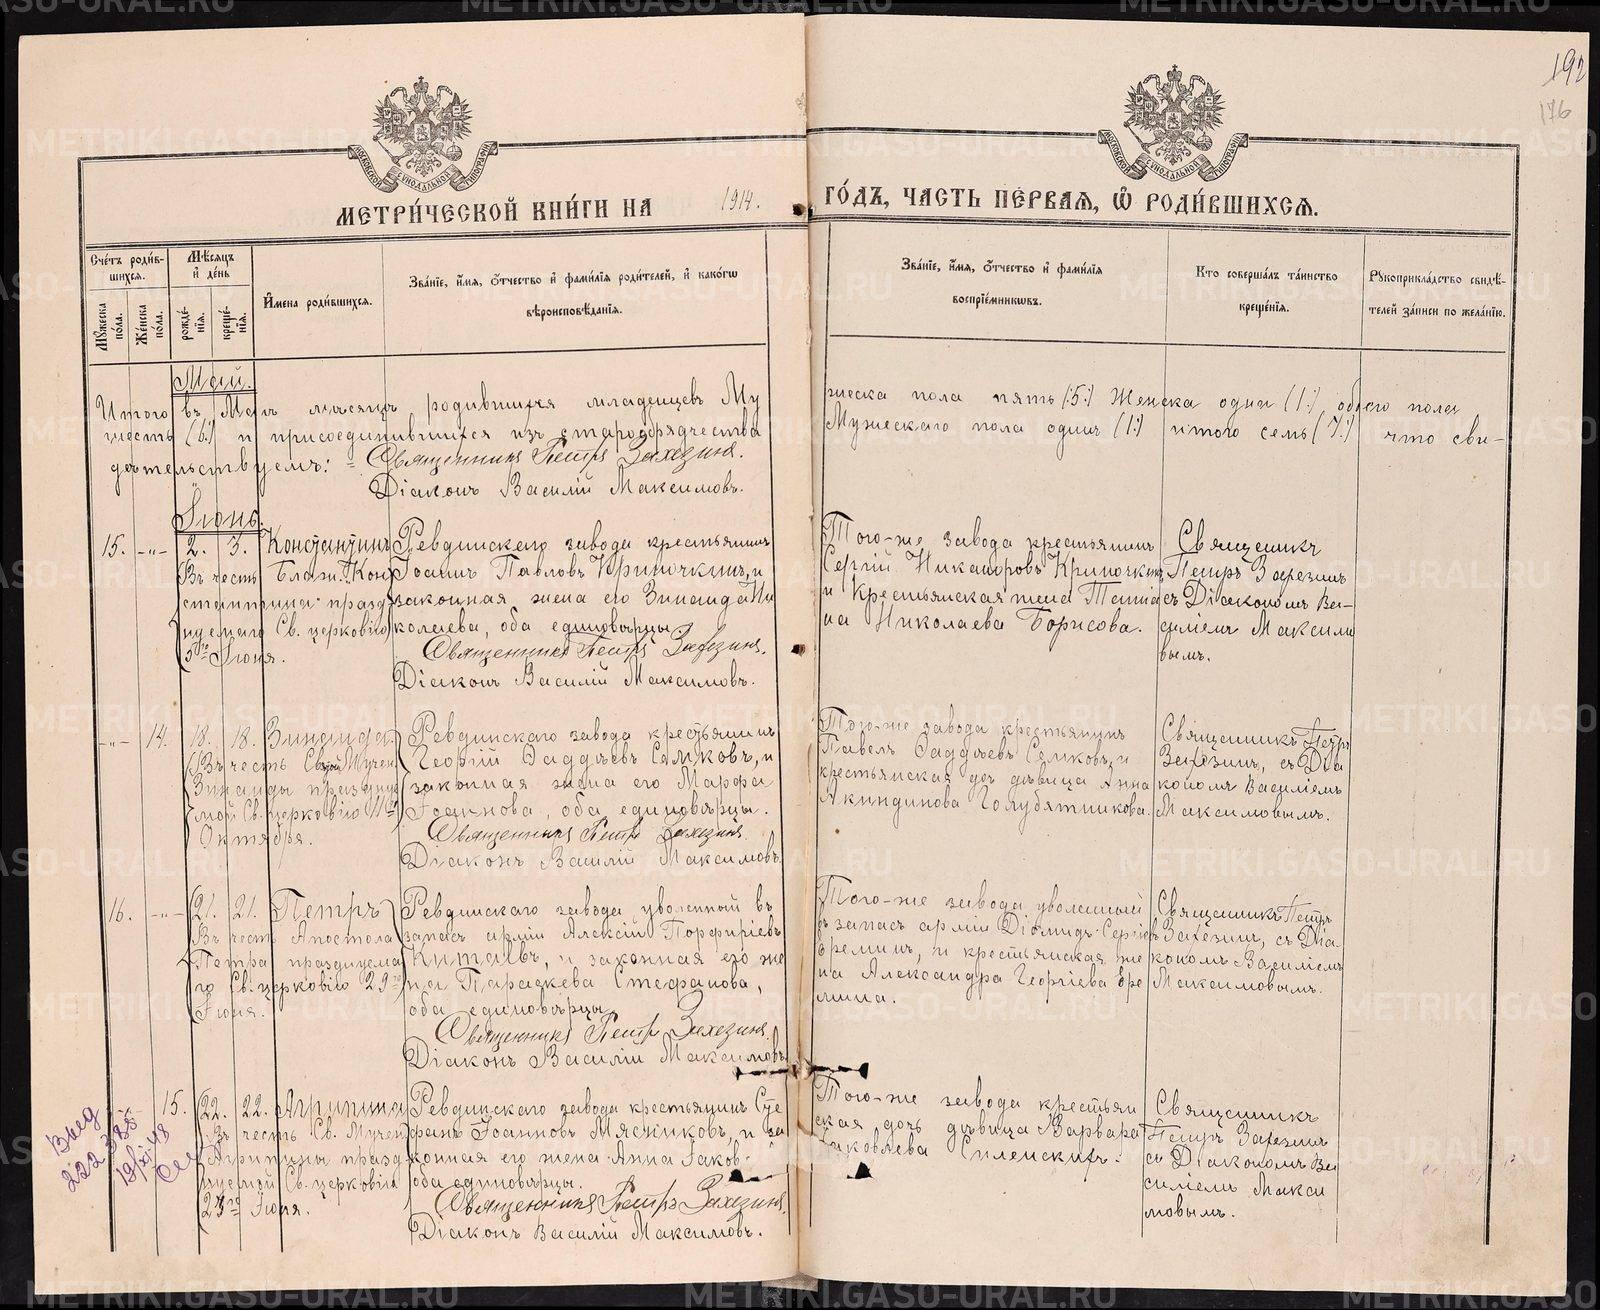 192
176
МОСКОВСКОЙ СУНОДАЛЬНОЙ ТИПОГРАФІИ
МОСКОВСКОЙ СУНОДАЛЬНОЙ ТИПОГРАФІИ
МЕТРИ́ЧЕСКОЙ КНИ́ГИ НА 1914. ГО́ДЪ, ЧАСТЬ ПЕ́РВАЯ, Ѽ РОДИ́ВШИХСЯ.
Сче́тъ роди́в-
шихся.
Му́жеска по́ла.
Же́нска по́ла.
Мѣ́сяцъ
и҆ де́нь
рожде́-
нїѧ.
креще́-
нїѧ.
И҆мена роди́вшихся.
Зва́нїе, и҆́мѧ, ѻ҆́тчество и҆ фами́лїѧ роди́телей, и҆ како́гѡ
вѣроисповѣ́данїѧ.
Зва́нїе, и҆́мѧ, ѻ҆́тчество и҆ фами́лїѧ
воспрїе́мникѡвъ.
Кто соверша́лъ та́инство
креще́нїѧ.
Рꙋкоприкла́дство свидѣ́-
телей за́писи по жела́нїю.
Май.
Итого въ Маѣ мѣсяцѣ родившихся младенцевъ Му
жеска пола пять (:5:) Женска одинъ (1:) обоего пола
шесть (6:) и присоединившихся изъ старообрядчества
Мужескаго пола одинъ (1:) итого семь (7:) что сви-
дѣтельствуемъ: = Священникъ Петръ Захезинъ.
Діаконъ Василій Максимовъ.
Іюнь.
15. -"- 2. 3. Константинъ
Въ честь Блаж. Кон
стантина празд
нуемаго Св. церковію
5го Іюня.
Ревдинскаго завода крестьянинъ
Іоаннъ Павловъ Криночкинъ, и
законная жена его Зинаида Ни
колаева, оба единовѣрцы.
Священникъ Петръ Захезинъ.
Діаконъ Василій Максимовъ.
Того-же завода крестьянинъ
Сергій Никаноровъ Криночкинъ
и крестьянская жена Татіа
на Николаева Борисова.
Священникъ
Петръ Захезинъ
съ Діакономъ Ва-
силіемъ Максимо
вымъ.
-"- 14. 18. 18. Зинаида
Въ честь Святой Мучен
Зинаиды празднуе
мой Св. церковію 11го
Октября.
Ревдинскаго завода крестьянинъ
Георгій Ѳаддѣевъ Семковъ, и
законная жена его Марфа
Іоаннова, оба единовѣрцы.
Священникъ Петръ Захезинъ
Діаконъ Василій Максимовъ.
Того-же завода крестьянинъ
Павелъ Ѳаддѣевъ Семковъ, и
крестьянская дочь дѣвица Анна
Акиндинова Голубятникова.
Священникъ Петръ
Захезинъ, съ Діа
кономъ Василіемъ
Максимовымъ.
16. -"- 21. 21. Петръ
Въ честь Апостола
Петра празднуема
го Св. церковію 29го
Іюня.
Ревдинскаго завода уволенный въ
запасъ арміи Алексій Порфиріевъ
Китаевъ, и законная его же
на Параскева Стефанова,
оба единовѣрцы.
Священникъ Петръ Захезинъ.
Діаконъ Василій Максимовъ.
Того-же завода уволенный
въ запасъ арміи Діомидъ Сергіевъ
Ереминъ, и крестьянская же
на Александра Георгіева Ере
мина.
Священникъ Петръ
Захезинъ, съ Діа-
кономъ Василіемъ
Максимовымъ.
15. 22. 22. Агрипина
Въ честь Св. Мучен
Агрипины празд
нуемой Св. церковію
23го Іюня.
Ревдинскаго завода крестьянинъ Сте
фанъ Іоанновъ Мясниковъ, и за
конная его жена Анна Іаков-
оба единовѣрцы.
Священникъ Петръ Захезинъ.
Діаконъ Василій Максимовъ.
Того-же завода крестьян
ская дочь дѣвица Варвара
Іаковлева
Священникъ
Петръ Захезинъ
съ Діакономъ Ва
силіемъ Макси
мовымъ.
Выд
222385
19/XI-48